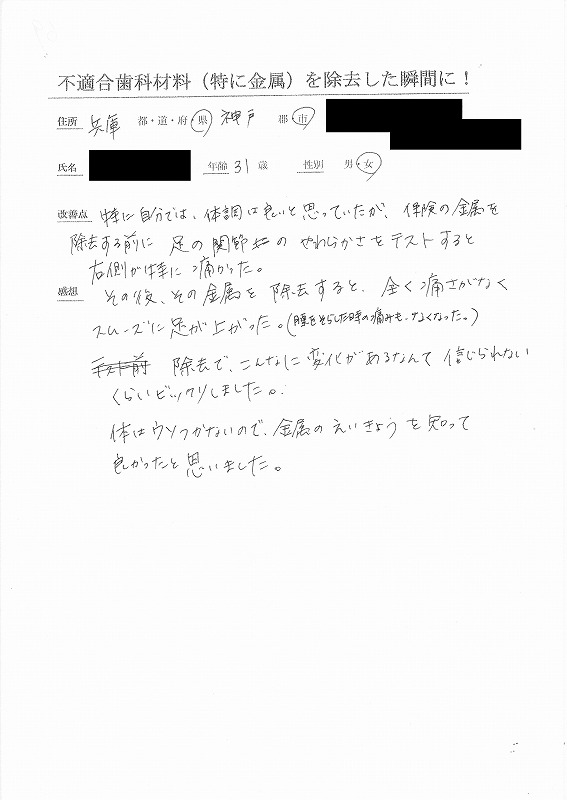 不適合歯科材料（特に金属）を除去した瞬間に！
住所 兵庫 都・道・府・県 神戸 郡 市
氏名 年齢 31 歳 性別 男・女
改善点 特に自分では、体調は良いと思っていたが、保険の金属を
除去する前に 足の関節の やわらかさをテストすると
右側が特に痛かった。
感想 その後、その金属を除去すると、全く痛さがなく
スムーズに足が上がった。(腰をそらした時の痛みも、なくなった。)
テスト前 除去で、こんなに変化があるなんて 信じられない
くらいビックリしました。
体はウソつかないので、金属のえいきょうを知って
良かったと思いました。